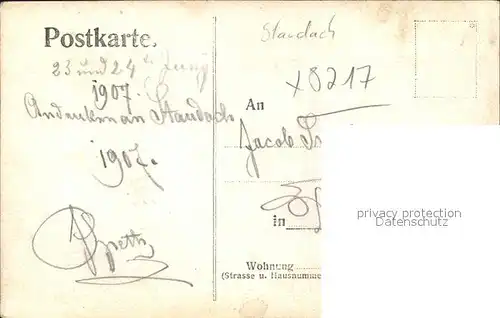 Postkarte.
23 und 24
1907.
Andenken an Staudach
1907.
Staudach
x8217
An
Jacob
in
Wohnung
(Strasse u. Hausnumme
privacy protection
Datenschutz